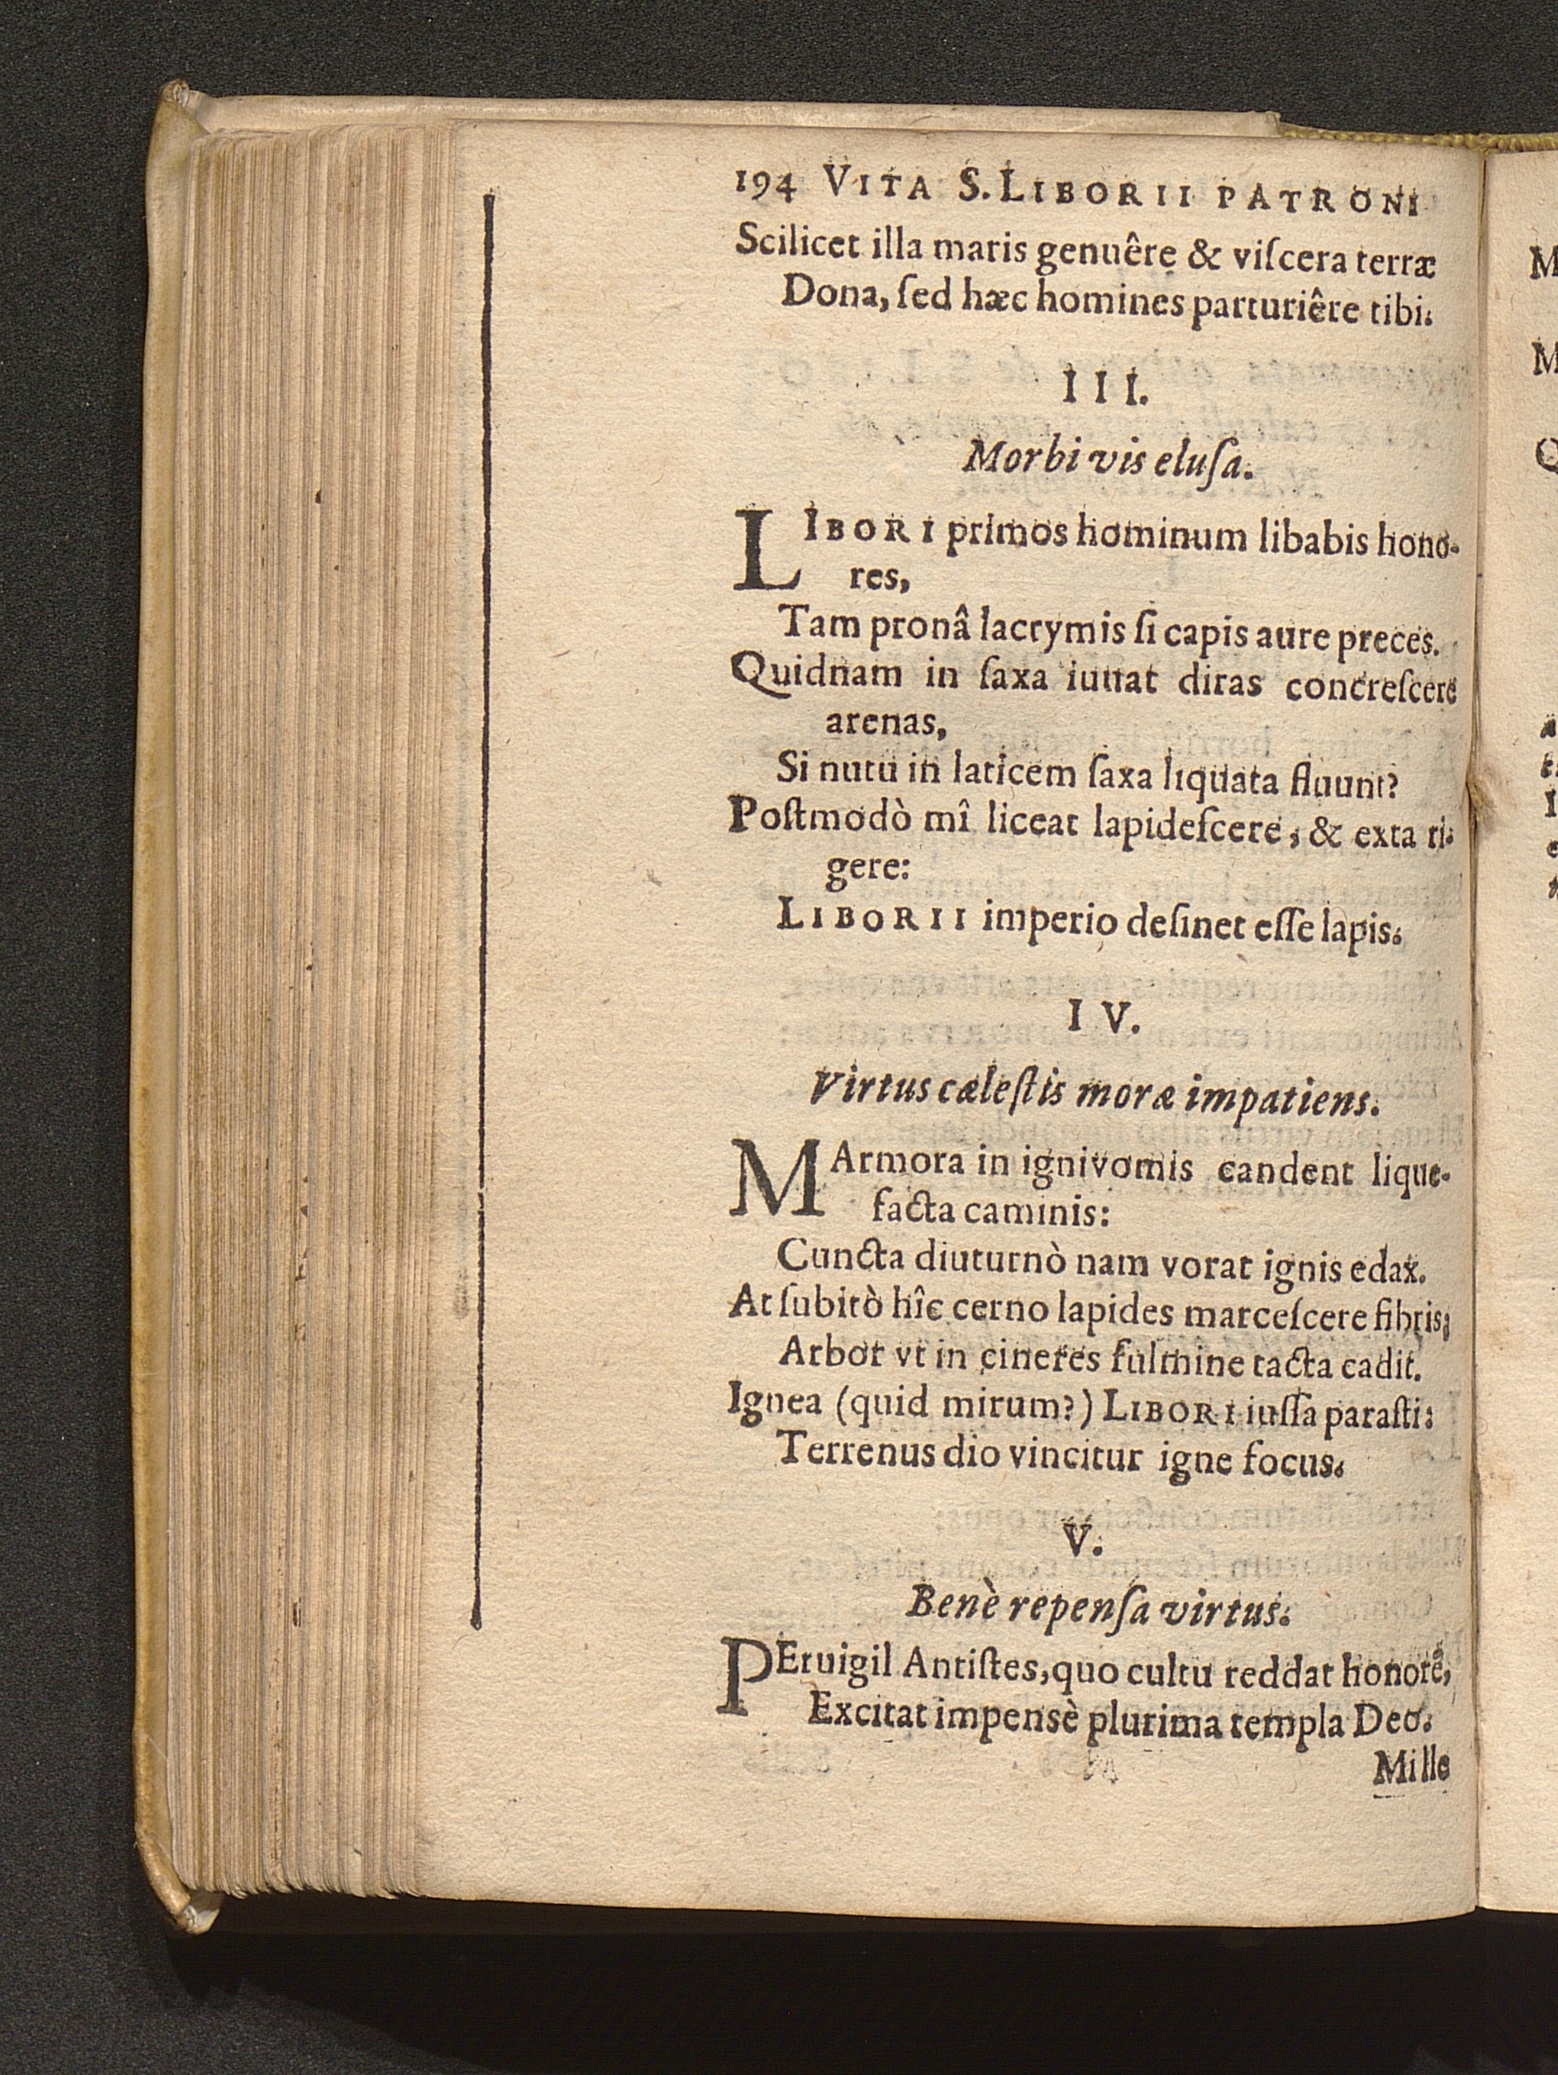 194 VITA S. LIBORII PATRONI
Scilicet illa maris genuêre & viſcera terræ
Dona, ſed hæc homines parturiêre tibi.
III.
Morbi vis eluſa.
LIBORI primos hominum libabis hono-
res,
Tam pronâ lacrymis ſi capis aure preces.
Quidnam in ſaxa iuuat diras concreſcere
arenas,
Si nutu in laticem ſaxa liquata fluunt?
Poſtmodò mî liceat lapideſcere, & exta ri-
gere:
LIBORII imperio deſinet eſſe lapis.
IV.
Virtus cæleſtis moræ impatiens.
MArmora in ignivomis candent lique-
facta caminis:
Cuncta diuturnò nam vorat ignis edax.
At ſubitò hîc cerno lapides marceſcere fibris;
Arbor vt in cineres fulmine tacta cadit.
Ignea (quid mirum?) LIBORI iuſſa paraſti:
Terrenus dio vincitur igne focus.
V.
Benè repenſa virtus.
PEruigil Antiſtes, quo cultu reddat honorē,
Excitat impensè plurima templa Deo.
Mille